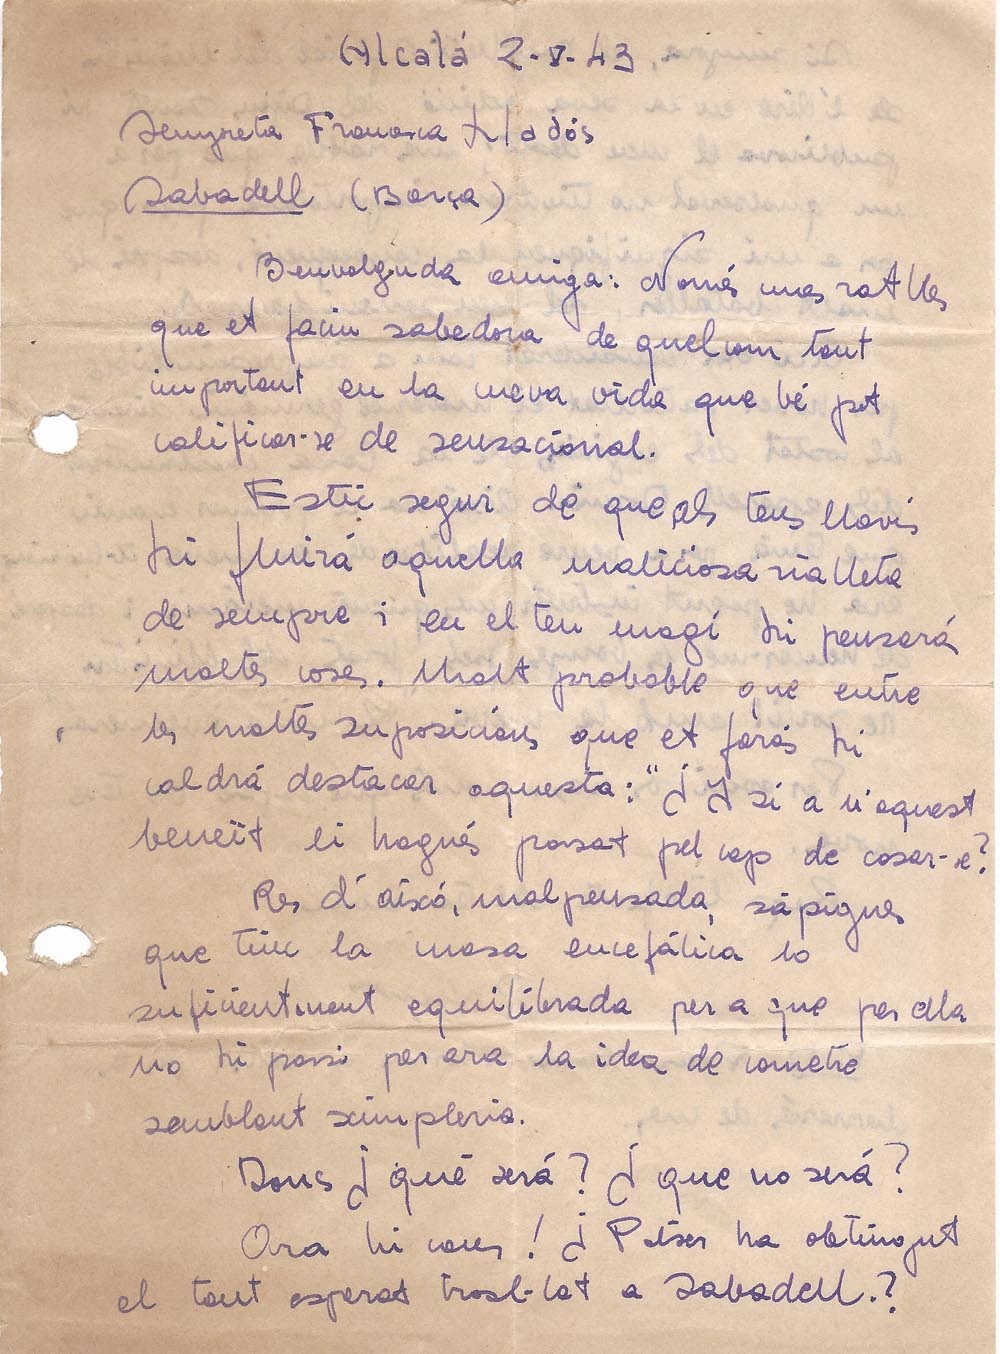 Alcalá 2-V-43
Senyoreta Francesca Lladós
Sabadell (Barça)
Benvolguda amiga: Només unes ratlles
que et faciu sabedora de quelcom tant
important en la meva vida que bé pot
calificar-se de sensacional.
Estic segur de que als teus llavis
hi fluirá aquella maliciosa rialleta
de sempre i en el teu magí hi pensará
moltes coses. Molt probable que entre
les moltes suposicions que et farás hi
caldrá destacar aquesta: "¿Y si a n'aquest
beneït li hagués passat pel cap de casar-se?
Res d'aixó, malpensada, sápigues
que tinc la masa encefálica lo
suficientment equilibrada per a que per ella
no hi passi per ara la idea de cometre
semblant ximpleria.
Dons ¿qué será? ¿que no será?
Ara hi caus! ¿Potser ha obtingut
el tant esperat trasl-lat a Sabadell.?